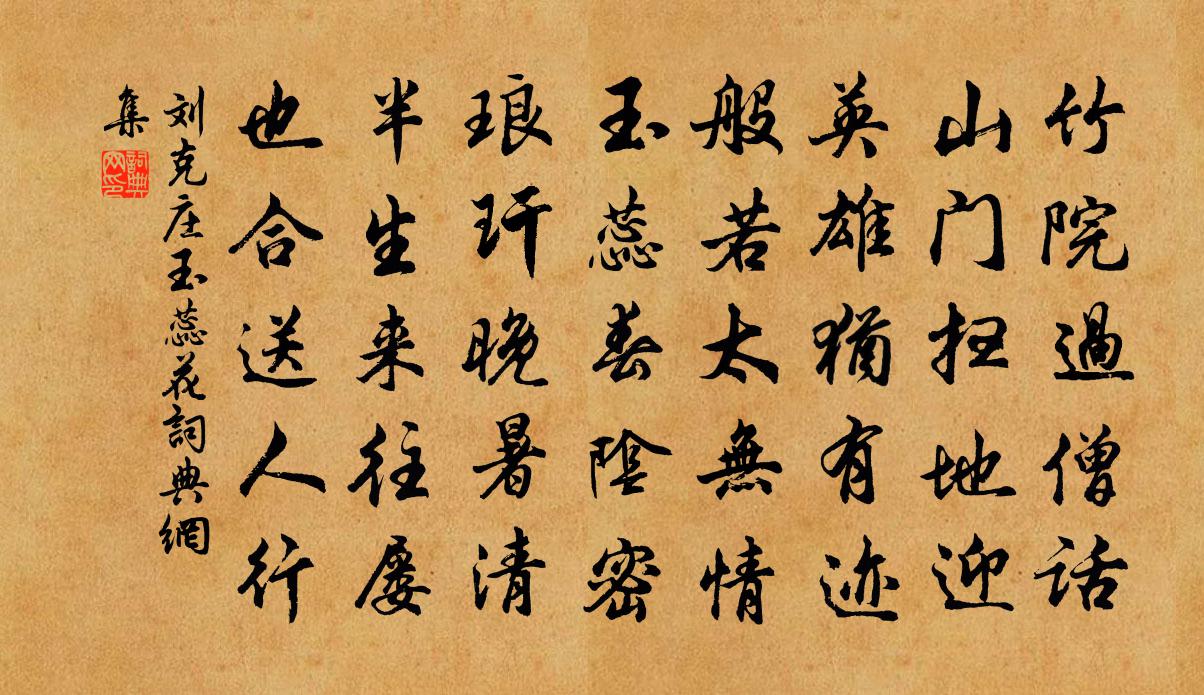 竹院過僧話
山门扫地迎
英雄猶有迹
般若太無情
玉蕊春陰密
琅玕晚暑清
半生来往屡
也合送人行
刘克庄玉蕊花詞典網
集
詞典
网印